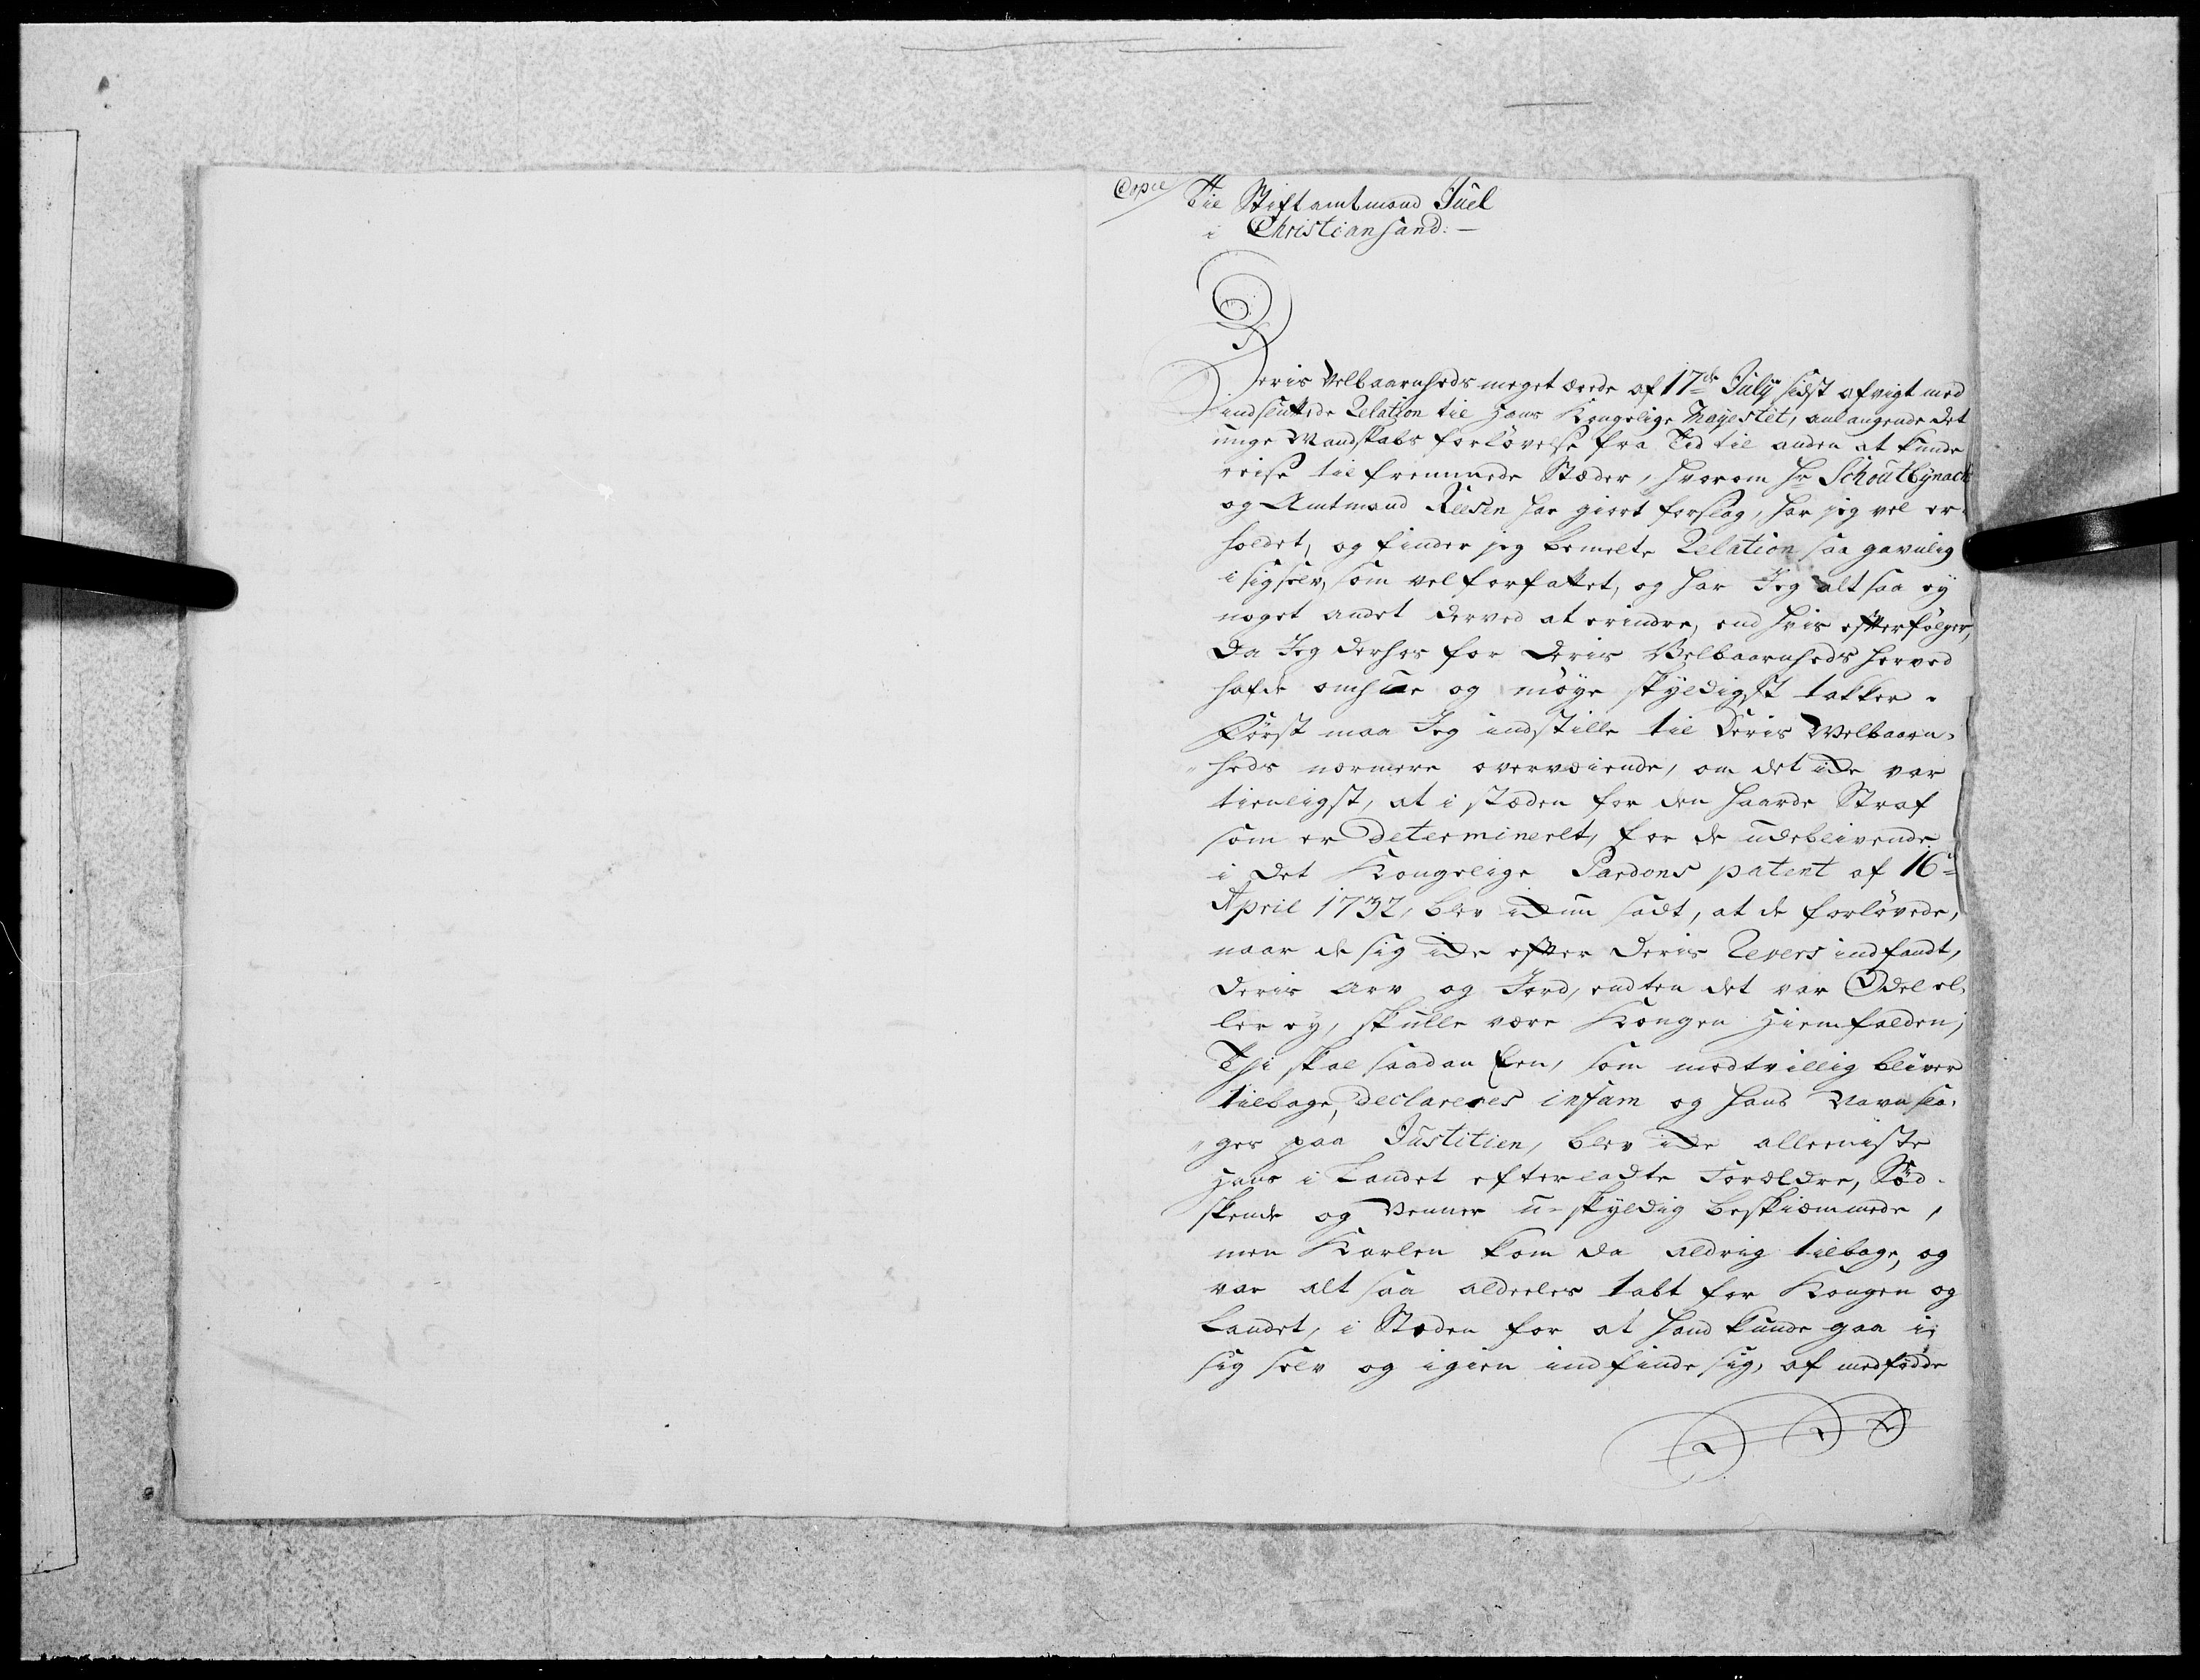 Copie
Til Stiftamtmand Juel
i Christiansand:—
Deris Velbaarnheds meget ærede af 17de July sidst afvigt med
indsluttede Relation til Hans Kongelige Mayestet, anlangende det
unge Mandskabs forlovelse fra Tid til anden at kunde
reise til fremmede Stæder, hvorom Hr Schoutbynach
og Amtmand Reesen har giort forslag, har jeg vel er-
holdet, og finder jeg bemelte Relation saa gavnlig
i sig selv, som vel forfattet, og har Jeg altsaa ey
noget andet derved at erindre, end hvis efterfølger,
da Jeg derhos for Deris Velbaarnheds herved
hafde omhue og møye skyldigst takker.
Først maa Jeg indstille til Deris Welbaarn-
heds nærmere overveiende, om det icke var
tienligst, at i stæden for den haarde Straf
som er determineret, for de udeblivende
i det Kongelige Pardons patent af 16
April 1732, blev ickun sadt, at de forlovede,
naar de sig icke efter Deris Revers indfandt,
Deris Arv og Jord, endten det var Odel el-
ler ey, skulle være Kongen Hiemfalden;
Thi skal saadan Een, som modtvillig bliver
tilbage, declareres infam og hans Navn sla-
ges paa Justitien, blev icke alleeniste
Hans i Landet efterladte Forældre, Sød-
skende og Venner u-skyldig beskiæmmede,
men Karlen kom da aldrig tilbage, og
var alt saa aldeeles tabt for Kongen og
Landet, i Stæden for at hand kunde gaa i
sig selv og igien indfinde sig, af medfødde